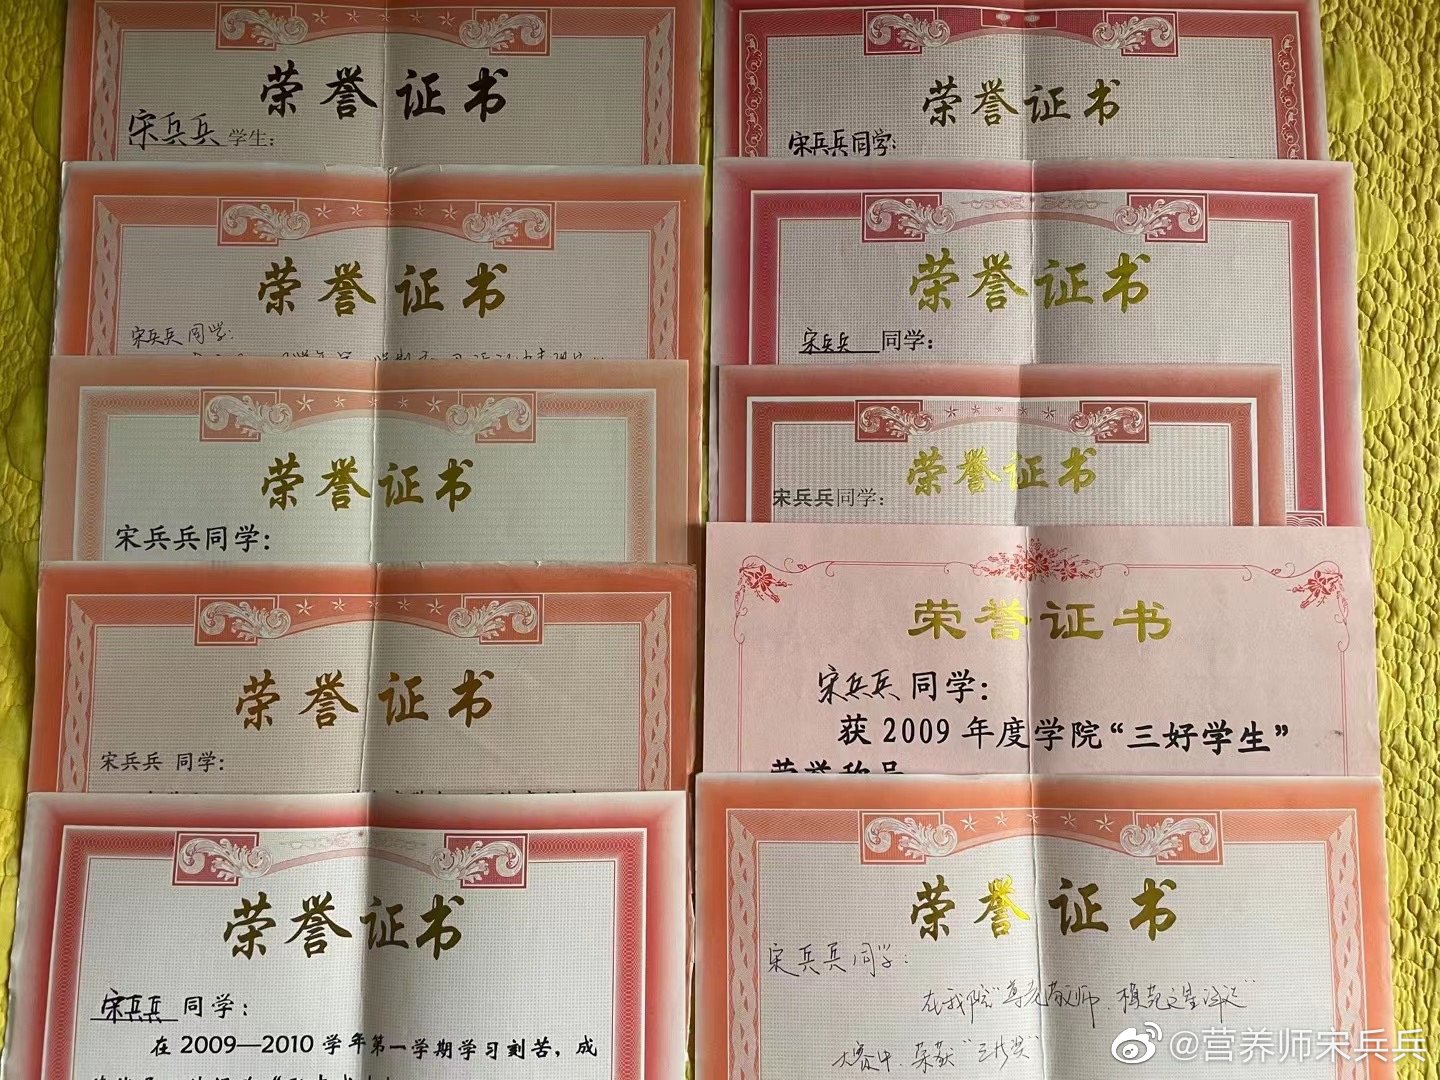 荣誉证书
宋兵兵学生:
荣誉证书
宋兵兵同学:
荣誉证书
宋兵兵同学:
荣誉证书
宋兵兵 同学:
荣誉证书
宋兵兵 同学:
在2009—2010学年第一学期学习刻苦，成
荣誉证书
宋兵兵同学:
荣誉证书
宋兵兵 同学:
荣誉证书
宋兵兵同学:
荣誉证书
宋兵兵同学:
获2009年度学院“三好学生”
荣誉称号
荣誉证书
宋兵兵同学:
在我院“尊老敬师、
大赛中,荣获“三等奖”
@营养师宋兵兵